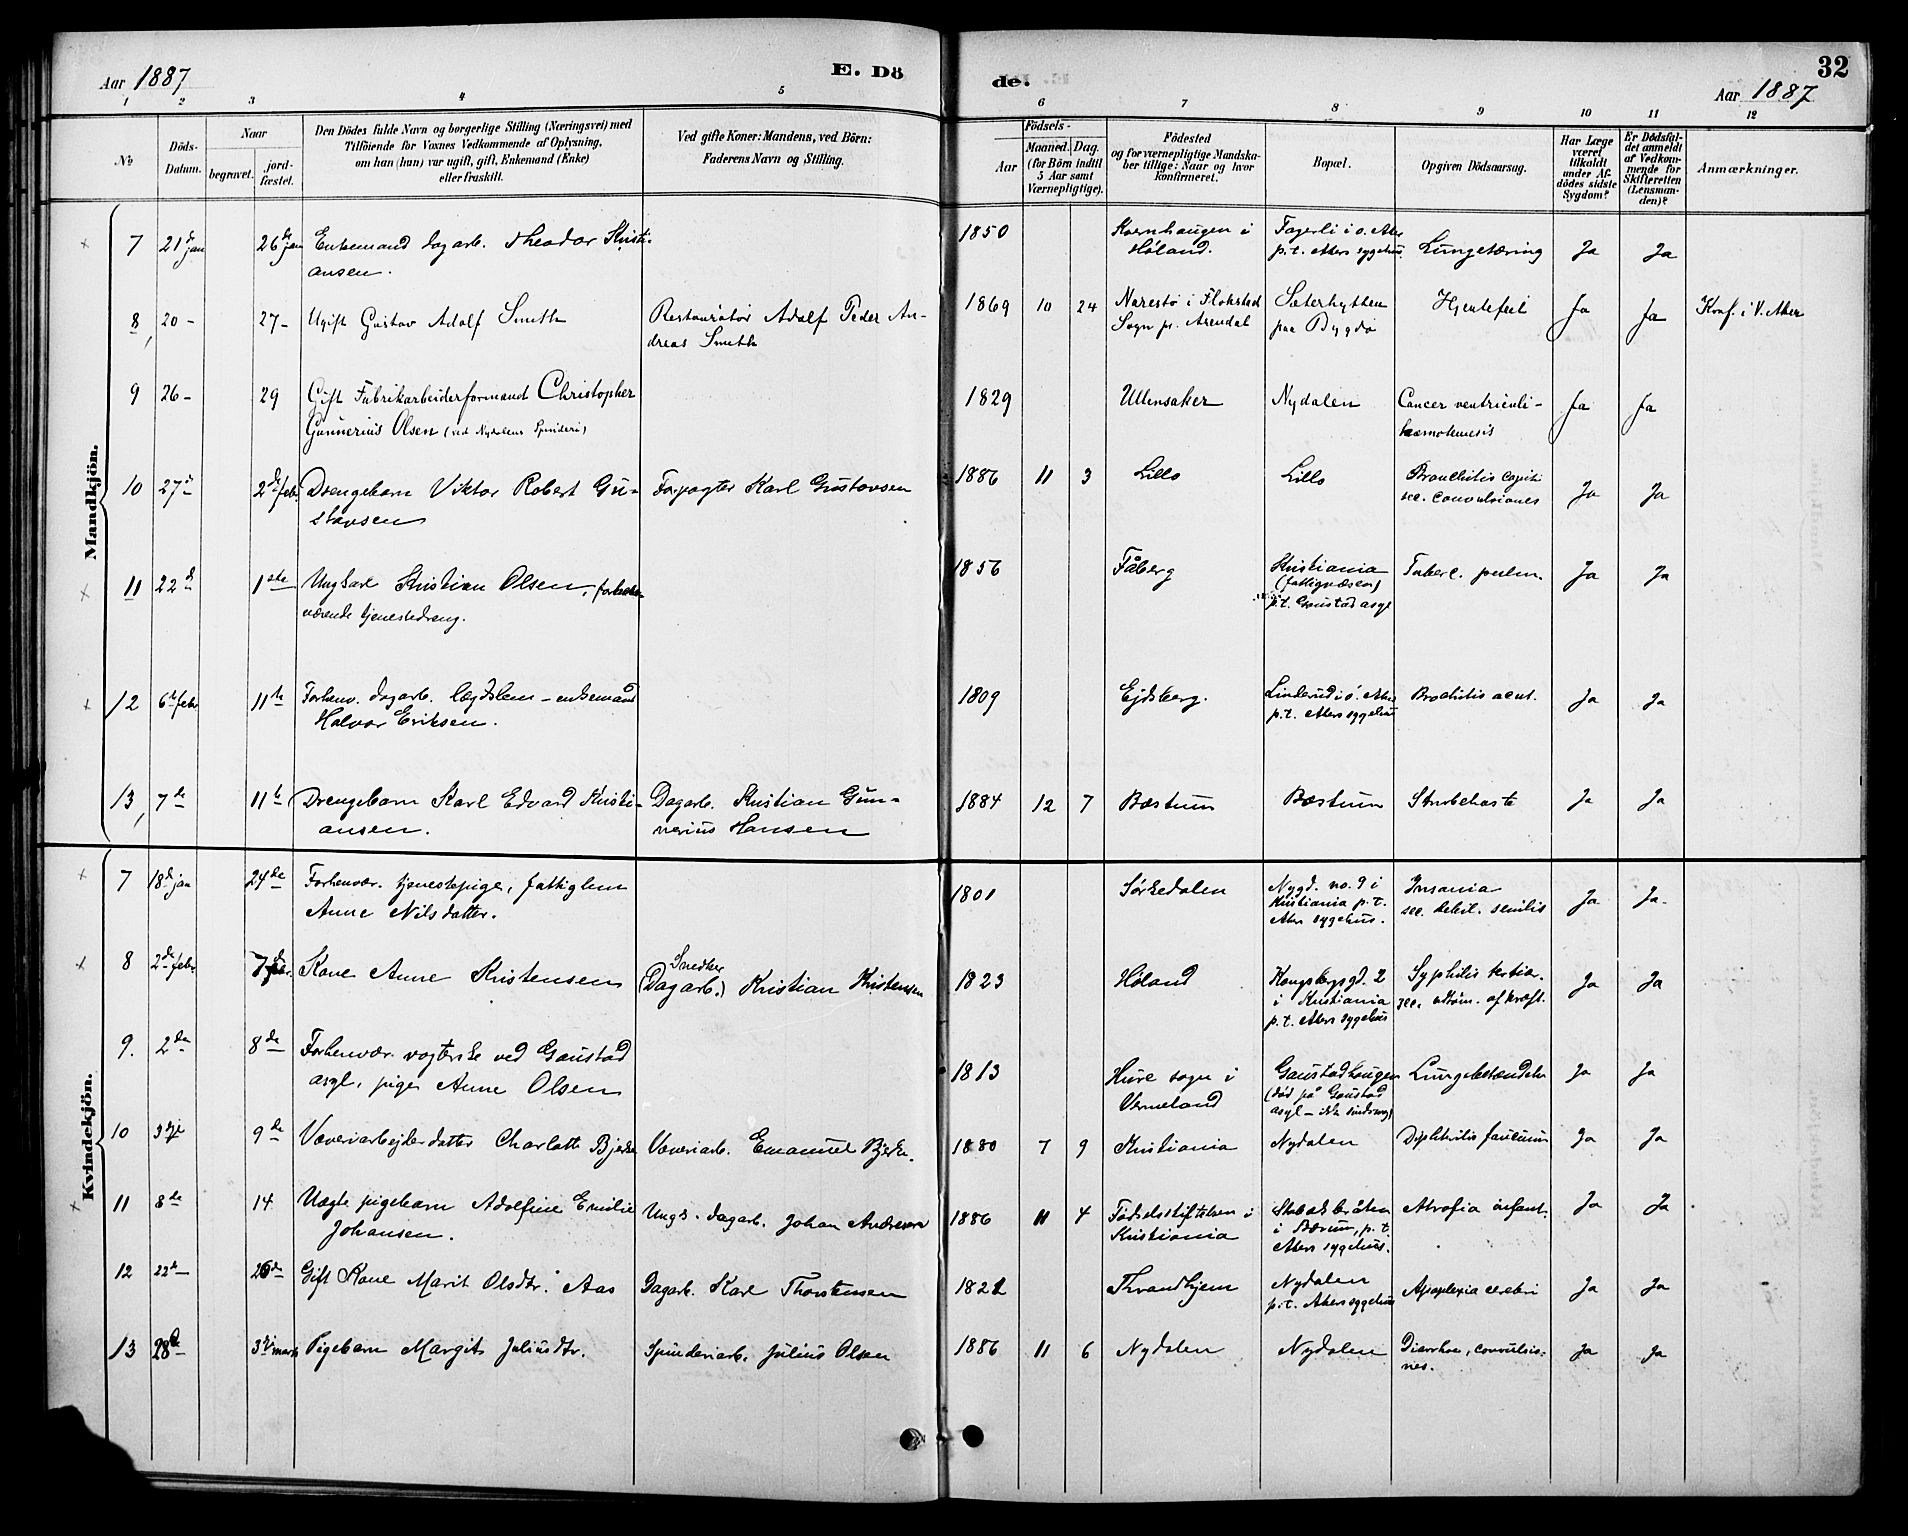 Aar 1887
E. Dö
de.
32
Aar 1887
1 2 3 4 5 6 7 8 9 10 11 12
No
Döds-
Datum.
Naar
begravet.
jord-
fæstet.
Den Dödes fulde Navn og borgerlige Stilling (Næringsvei) med
Tilföiende for Voxnes Vedkommende af Oplysning,
om han (hun) var ugift, gift, Enkemand (Enke)
eller fraskilt.
Ved gifte Koner: Mandens, ved Börn:
Faderens Navn og Stilling.
Födsels-
Aar
Maaned. Dag.
(for Börn indtil
5 Aar samt
Værnepligtige).
Födested
og for værnepligtige Mandska-
ber tillige: Naar og hvor
konfirmeret.
Bopæl.
Opgiven Dödsaarsag.
Har Læge
været
tilkaldt
under Af-
dödes sidste
Sygdom?
Er Dødsfal-
det anmeldt
af Vedkom-
mende for
Skifteretten
(Lensman-
den)?
Anmærkninger.
Mandkjön.
7 21d jan 26de jan Enkemand dagarb. Theodor Kristi-
ansen.
1850 Kornhaugen i
Høland.
Fagerli i ö. Aker
p.t. Akers sygehus.
Lungetæring Ja Ja
8 20 - 27 - Ugift Gustav Adolf Smith
Restauratør Adolf Peder An-
dreas Smith
1869 10 24 Narestø i Flokstad
Sogn pr. Arendal
Sæterhytten
paa Bygdø
Hjertefeil Ja Ja Konf. i V. Aker
9 26 - 29 Gift Fabrikarbeiderformand Christopher
Gunnerius Olsen (ved Nydalens Spinderi)
1829 Ullensaker Nydalen Cancer ventriculi -
hæmatemesis
Ja Ja
10 27d 2d febr. Drengebarn Viktor Robert Gu-
stavsen
Forpagter Karl Gustavsen
1886 11 3 Lillo Lillo Bronchitis capil.
sec. convulsiones
Ja Ja
11 22d 1ste Ungkarl Kristian Olsen, forhen-
værende tjenestedreng.
1856 Fåberg Kristiania
(fattigvæsen)
p.t. Gaustad asyl
Tuberc. pulm. Ja Ja
12 6te febr 11te Forhenv. dagarb. lægdslem - enkemand
Halvor Eriksen.
1809 Ejdsberg. Linderud i ö. Aker
p.t. Akers sygehus
Brochitis acut. Ja Ja
13 7de 11te Drengebarn Karl Edvard Kristi-
ansen.
Dagarb. Kristian Gun-
nerius Hansen
1884 12 7 Bæstum Bæstum Strubehoste Ja Ja
Kvindekjön.
7 18d jan 24de Forhenvær. tjenestepige, fattiglem
Anne Nilsdatter.
1801 Sørkedalen Nygd. no. 9 i
Kristiania p.t.
Akers sygehus.
Insania
sec. debil. senilis
Ja Ja.
8 2den febr. 7de Kone Anne Kristensen
Snedker
(Dagarb.) Kristian Kristensen
1823 Høland Kongsbergsgd. 2
i Kristiania
p.t. Akers sygehus
Syphilis tertiær.
sec. udtøm. af kræft.
Ja Ja
9. 2den 8de Forhenvær. vogterske ved Gaustad
asyl, pige Anne Olsen
1813 Hure sogn i
Vermeland
Gaustadhaugen
(död på Gaustad
asyl - ikke sindssyg)
Lungebetændelse Ja Ja
10 3dje 9de Væveriarbejderdatter Charlotte Bjerke
Væveriarb. Emanuel Bjerke.
1880 7 9 Kristiania Nydalen Diphtheritis faucium Ja Ja
11 8de 14 Uægte pigebarn Adolfine Emilie
Johansen.
Ungk. dagarb. Johan Andresen
1886 11 4 Fødselsstiftelsen i
Kristiania
Stabækbråten
i Bærum, p.t.
Akers sygehus.
Atrofia infant. Ja Ja
12 22d 26de Gift Kone Marit Olsdtr. Aas
Dagarb. Karl Thorstensen
1822 Thrandhjem Nydalen
p.t. Akers sygehus
Apoplexia cerebri Ja Ja
13 28d 3die marts Pigebarn Margit Juliusdtr.
Spinderiarb. Julius Olsen
1886 11 6 Nydalen Nydalen Diarrhoe, convulsio-
nes.
Ja Ja